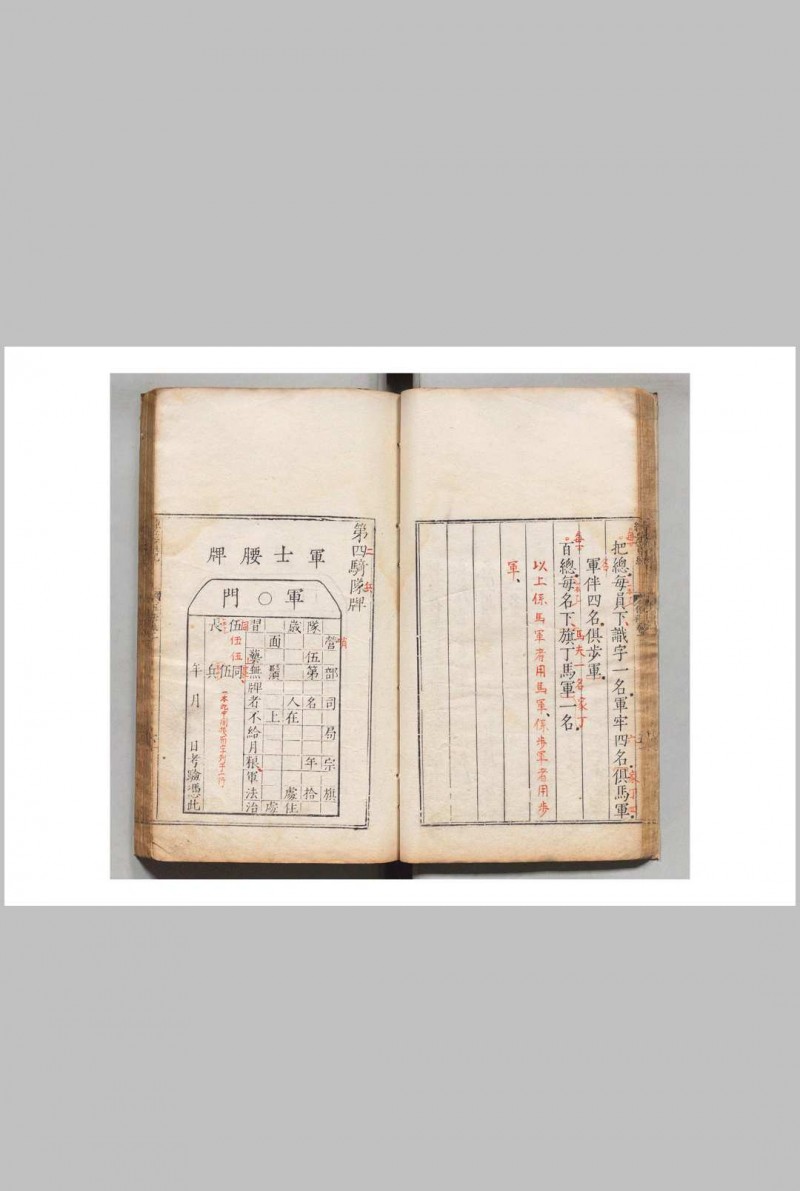 把總每員下識字一名軍牢四名俱馬軍
軍伴四名俱步軍
馬夫一名家丁
百總每名下旗丁馬軍一名
以上係馬軍者用馬軍係步軍者用步
軍
第四騎隊牌
軍士腰牌
軍門
營部司局宗旗
隊伍第名年拾
歲人在處住
面鬚上處
習藝無牌者不給月粮軍法治
伍同伍
長兵
年月日考驗憑此